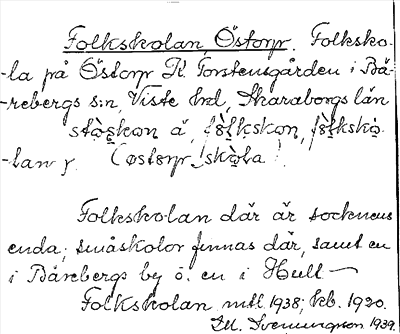 Folkskolan, Östorp. Folksko-
-la på Östorp Kl. Torstensgården i Bä-
-rebergs s:n, Viste hd, Skaraborgs län
å,
(østorp skola).
Folkskolan där är socknens
enda; småskolor finnas där, samt en
i Bärebergs by o. en i Hull—
Folkskolan nttl 1938; kb. 1920.
D.H. Svenungson 1939.